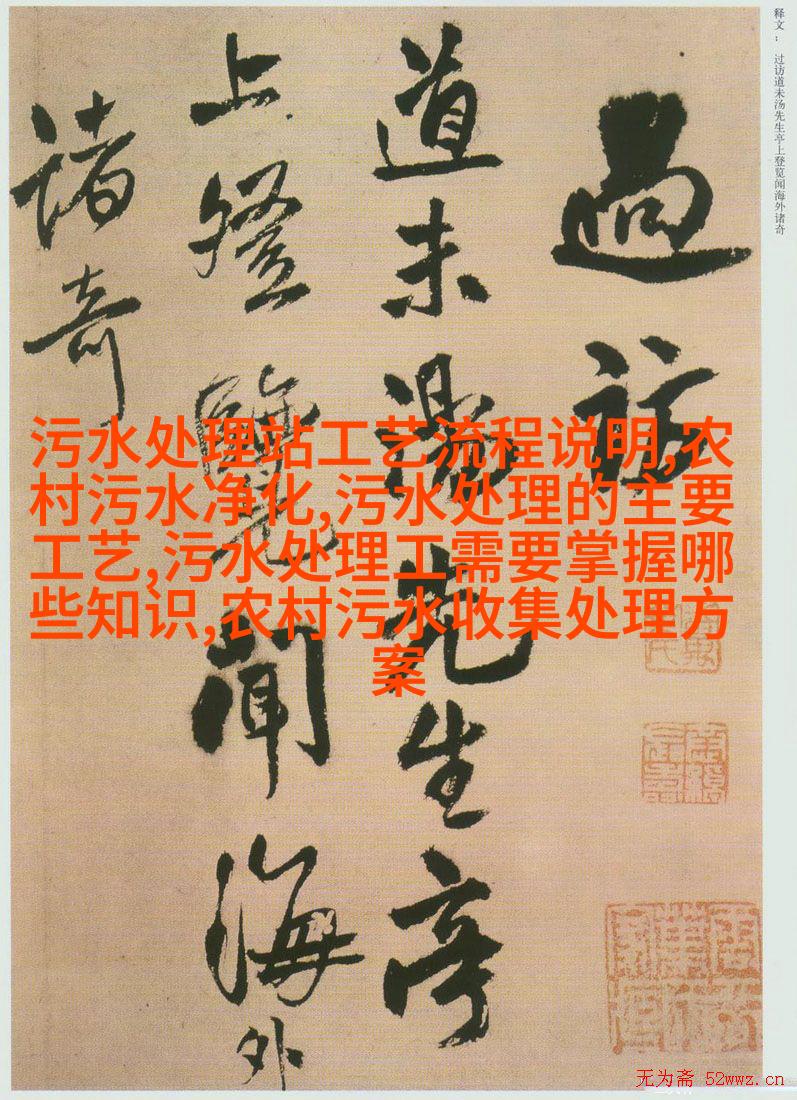 释文： 过访道未汤先生亭上登览闻海外诸奇
過訪
道未湯先生亭
上登覽聞海外
諸奇
污水处理站工艺流程说明,农
村污水净化,污水处理的主要
工艺,污水处理工需要掌握哪
些知识,农村污水收集处理方
案
无为斋 52wwz.cn